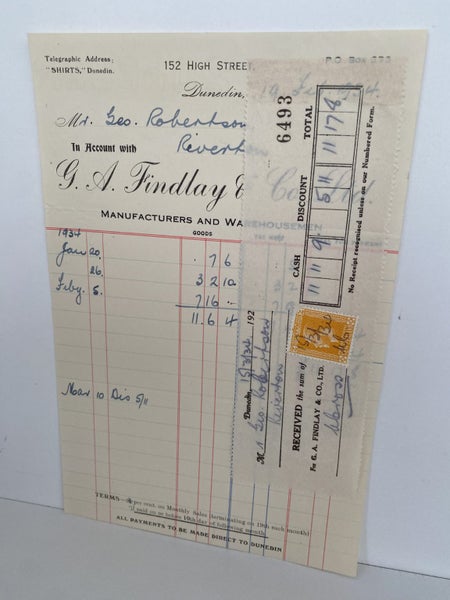 Telegraphic Address;
"SHIRTS," Dunedin.
152 HIGH STREET
P.O. Box 273
Dunedin,
Mr. Geo. Robertson
Riverton
In Account with
G. A. Findlay & Co. Ltd.
MANUFACTURERS AND WAREHOUSEMEN
GOODS
1934
Jan 20. 7 6
26. 3 2 10
Feby 5. 7 16 -
11. 6 4
Mar 10 Dis 5/11
TERMS
per cent. on Monthly Sales (terminating on 19th each month)
if paid on or before 10th day of following month
ALL PAYMENTS TO BE MADE DIRECT TO DUNEDIN
6493
CASH DISCOUNT TOTAL
11 11 9. 5 11 11 17 8
No Receipt recognised unless on our Numbered Form.
Dunedin, 15/3/34 192
M r Geo Robertson
Riverton
RECEIVED the sum of
For G. A. FINDLAY & CO., LTD.